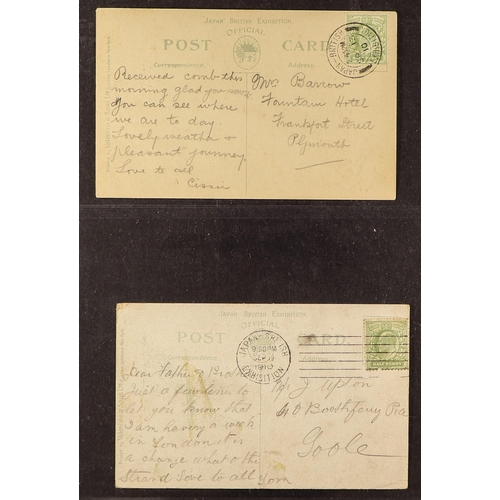 JAPAN BRITISH EXHIBITION
OFFICIAL
POST CARD
Correspondence.
Address.
Received comb this
morning glad you
You can see where
we are to day.
Lovely weather &
pleasant journey
Love to all
Cissie
Mrs Barrow
Fountain Hotel
Frankfort Street
Plymouth
JAPAN-BRITISH
JAPAN BRITISH EXHIBITION.
OFFICIAL
POST CARD.
Correspondence.
JAPAN-BRITISH
1910
EXHIBITION
Dear Father &
Just a few lines to
let you know that
I am having a week
in London it is
a change what o the
Strand Love to all Tom
J Upton
40
Goole